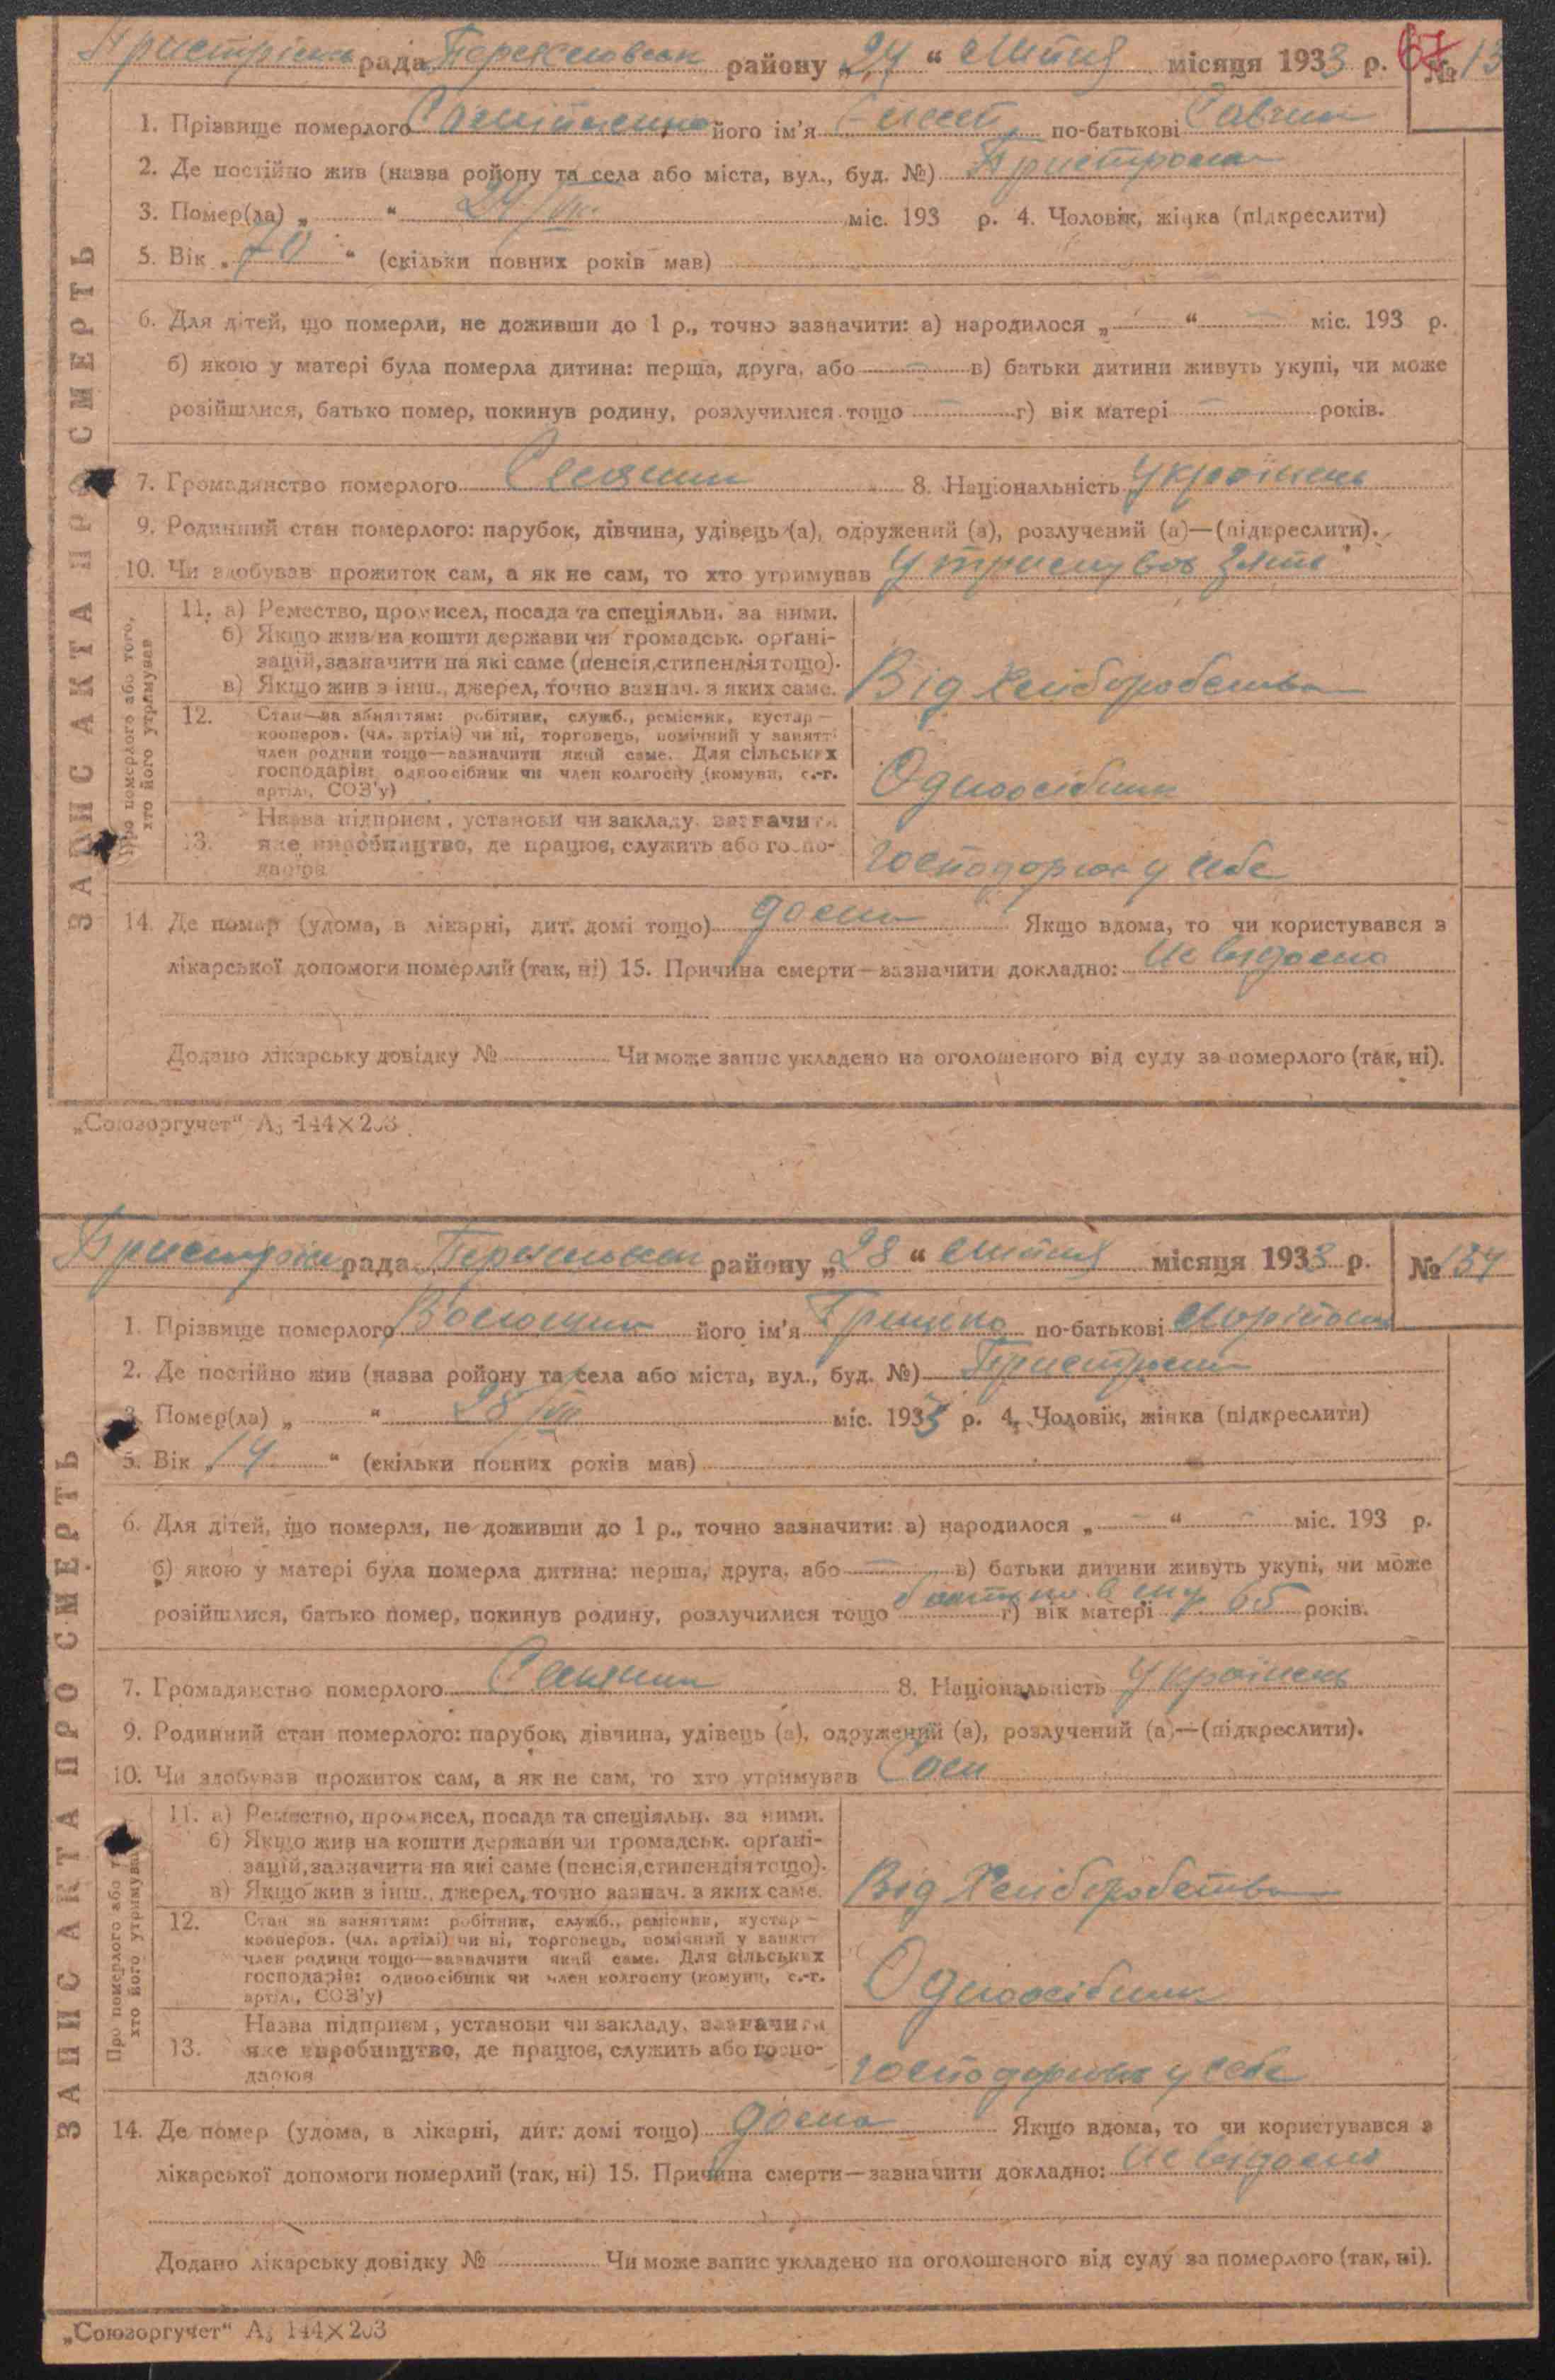 рада району „24“ Липня місяця 1933 р. №
1. Прізвище померлого його ім'я по-батькові
2. Де постійно жив (назва ройону та села або міста, вул., буд. №)
3. Помер(ла) „ “ 24/VII. міс. 193 р. 4. Чоловік, жінка (підкреслити)
5. Вік „70“ (скільки повних років мав)
6. Для дітей, що померли, не доживши до 1 р., точно зазначити: а) народилося „ “ міс. 193 р.
б) якою у матері була померла дитина: перша, друга, або в) батьки дитини живуть укупі, чи може
розійшлися, батько помер, покинув родину, розлучилися тощо г) вік матері років.
7. Громадянство померлого Селянин 8. Національність Українець
9. Родинний стан померлого: парубок, дівчина, удівець (а), одружений (а), розлучений (а)—(підкреслити).
10. Чи здобував прожиток сам, а як не сам, то хто утримував утримував зять
11. а) Ремество, промисел, посада та спеціяльн. за ними.
б) Якщо жив на кошти держави чи громадськ. орґані-
зацій, зазначити на які саме (пенсія, стипендія тощо).
в) Якщо жив з інш., джерел, точно зазнач. з яких саме. Від Хліборобства
12. Стан—за заняттям: робітник, служб., ремісник, кустар—
кооперов. (чл. артілі) чи ні, торговець, помічний у занятті
член родини тощо—зазначити який саме. Для сільських
господарів: одноосібник чи член колгоспу (комуни, с.-г.
артілі, СОЗ'у) Одноосібник
Назва підприєм., установи чи закладу, зазначити
13. яке виробництво, де працює, служить або госпо-
дарює у себе
14. Де помер (удома, в лікарні, дит. домі тощо) дома Якщо вдома, то чи користувався з
лікарської допомоги померлий (так, ні) 15. Причина смерти—зазначити докладно: Не відомо
Додано лікарську довідку № Чи може запис укладено на оголошеного від суду за померлого (так, ні).
ЗАПИС АКТА ПРО СМЕРТЬ
Про померлого або того,
хто його утримував
„Союзоргучет“ А5 144×203
рада району „28“ Липня місяця 1933 р. № 134
1. Прізвище померлого його ім'я Грицько по-батькові
2. Де постійно жив (назва ройону та села або міста, вул., буд. №)
3. Помер(ла) „ “ 28/VII міс. 1933 р. 4. Чоловік, жінка (підкреслити)
5. Вік „14“ (скільки повних років мав)
6. Для дітей, що померли, не доживши до 1 р., точно зазначити: а) народилося „ “ міс. 193 р.
б) якою у матері була померла дитина: перша, друга, або в) батьки дитини живуть укупі, чи може
розійшлися, батько помер, покинув родину, розлучилися тощо г) вік матері 65 років.
7. Громадянство померлого Селянин 8. Національність Українець
9. Родинний стан померлого: парубок, дівчина, удівець (а), одружений (а), розлучений (а)—(підкреслити).
10. Чи здобував прожиток сам, а як не сам, то хто утримував Сам
11. а) Ремество, промисел, посада та спеціяльн. за ними.
б) Якщо жив на кошти держави чи громадськ. орґані-
зацій, зазначити на які саме (пенсія, стипендія тощо).
в) Якщо жив з інш., джерел, точно зазнач. з яких саме. Від Хліборобства
12. Стан за заняттям: робітник, служб., ремісник, кустар—
кооперов. (чл. артілі) чи ні, торговець, помічний у занятті
член родини тощо—зазначити який саме. Для сільських
господарів: одноосібник чи член колгоспу (комуни, с.-г.
артілі, СОЗ'у) Одноосібник
Назва підприєм., установи чи закладу, зазначити
13. яке виробництво, де працює, служить або госпо-
дарює у себе
14. Де помер (удома, в лікарні, дит. домі тощо) дома Якщо вдома, то чи користувався з
лікарської допомоги померлий (так, ні) 15. Причина смерти—зазначити докладно: Не відомо
Додано лікарську довідку № Чи може запис укладено на оголошеного від суду за померлого (так, ні).
ЗАПИС АКТА ПРО СМЕРТЬ
Про померлого або
хто його утримував
„Союзоргучет“ А5 144×203